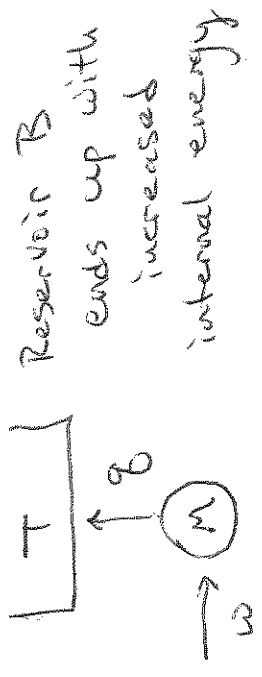 Reservoir B
ends up with
increased
internal energy
T
q
M
w